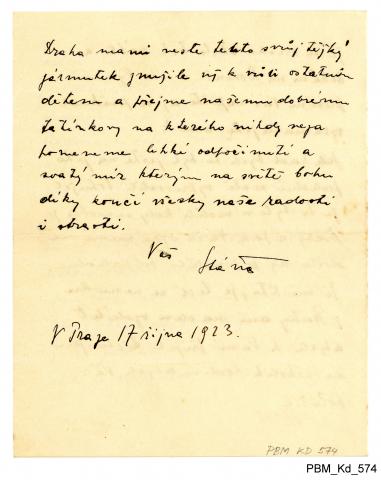 Draha mami neste tento svůj těžký
zármutek zmužile už k vůli ostatním
dětem a přejme našemu dobrému
tatínkovy na kterého nikdy neza
pomeneme lehké odpočinutí a
svatý mír kterým na světě bohu
díky končí všecky naše radosti
i strasti.
Váš
Sláva
V Praze 17 října 1923.
PBM KD 574
PBM_Kd_574